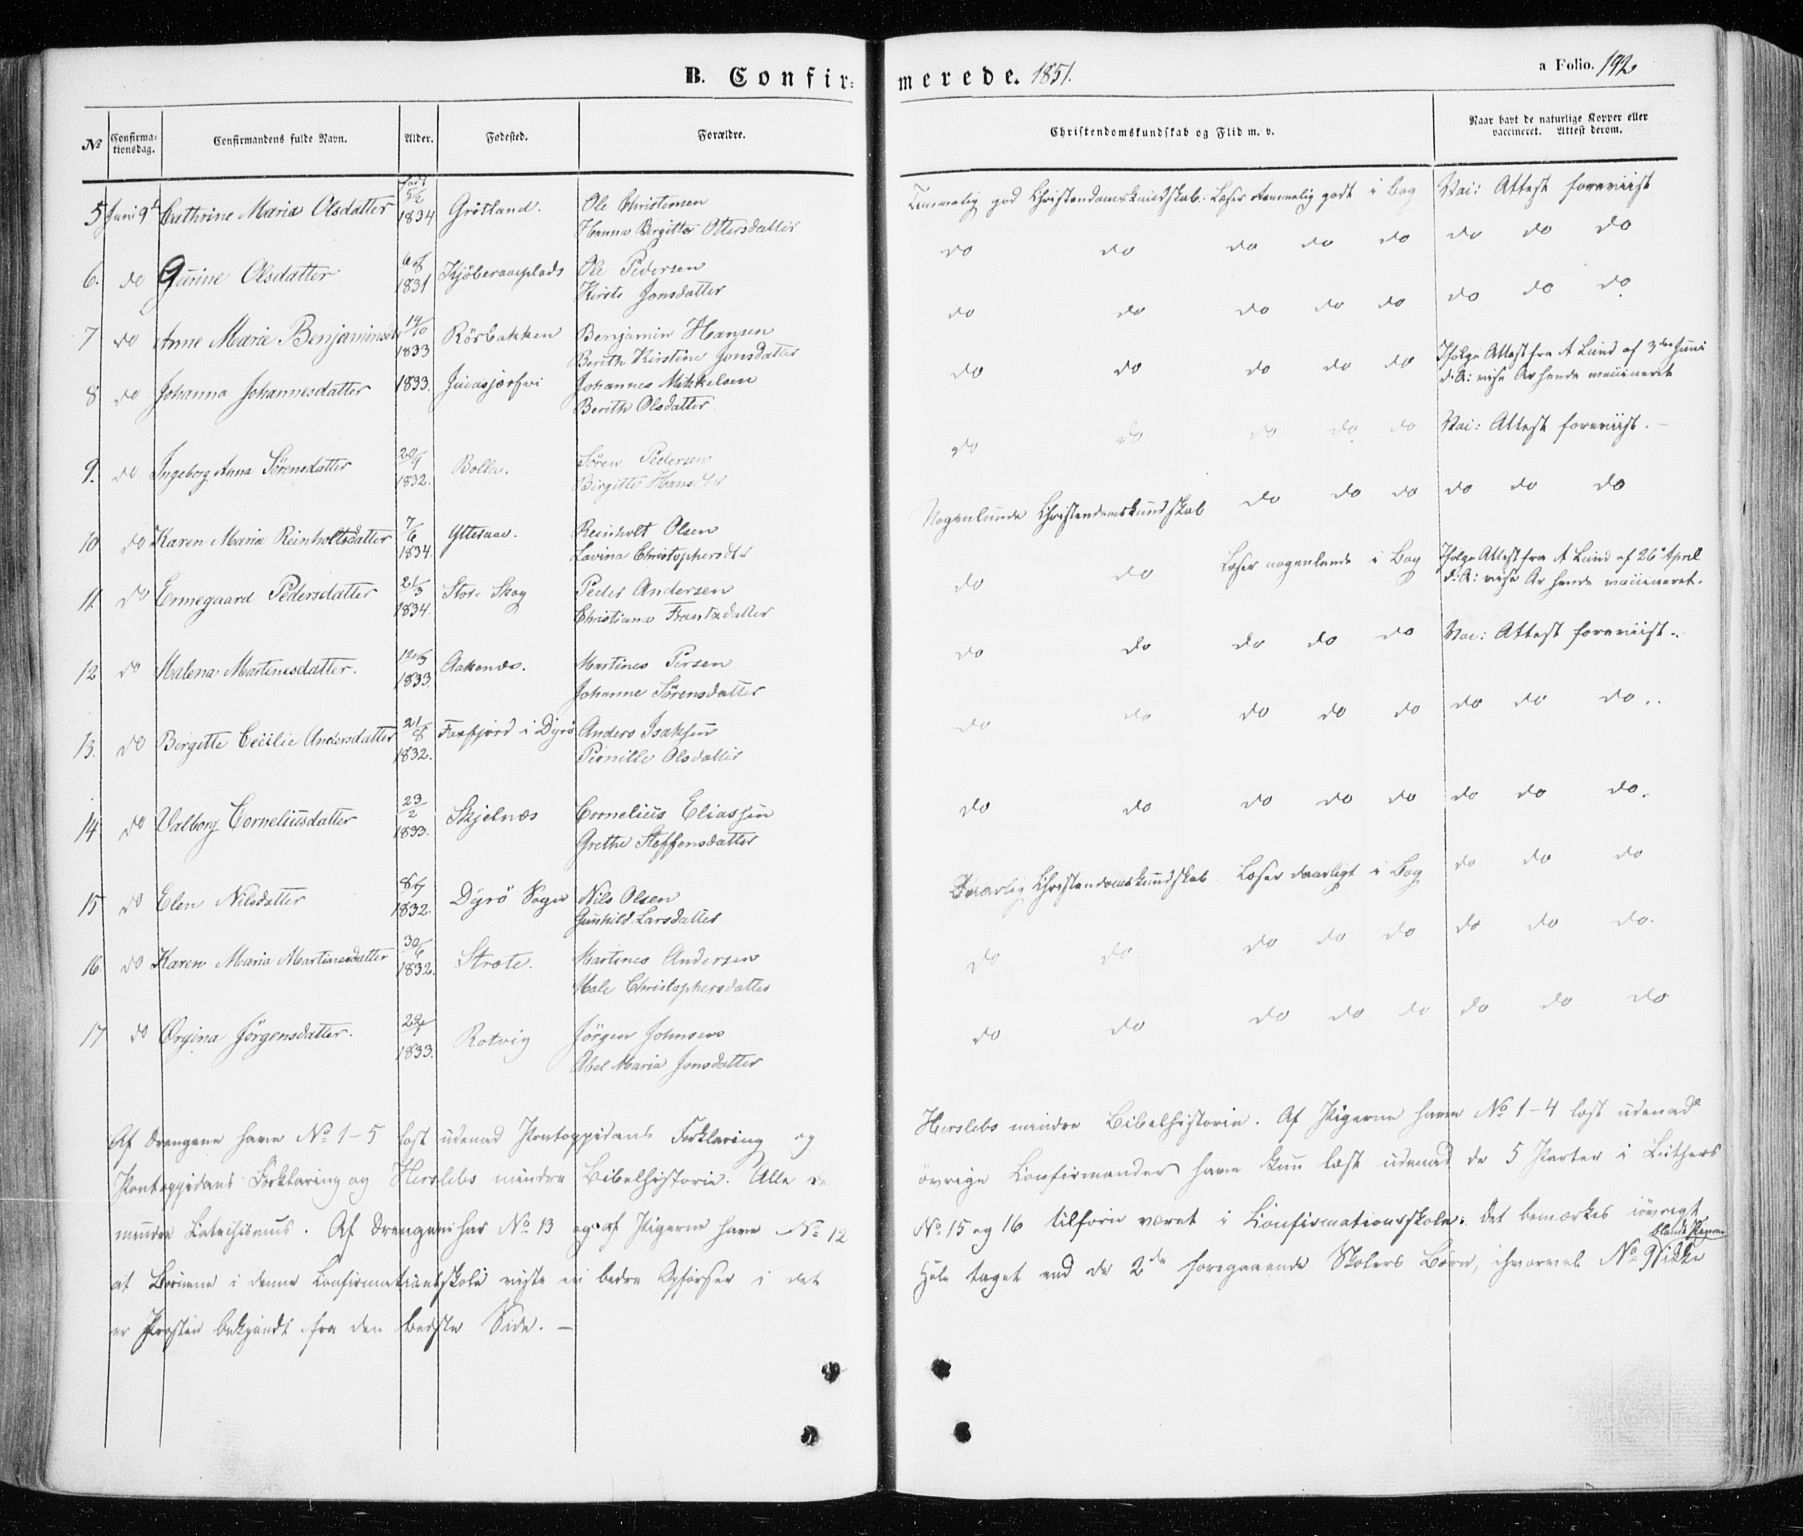 B. Confir-merede. 1851.
a Folio. 192
No
Confirma-tionsdag.
Confirmandens fulde Navn.
Alder.
Fødested.
Forældre.
Christendomskundskab og Flid m. v.
Naar havt de naturlige Kopper eller vaccineret. Attest derom.
5 Juni 9d Cathrine Maria Olsdatter født 5/2 1834 Grötland. Ole Christensen Temmelig god Christendomskundskab. Læser temmelig godt i Bog Vac: Attest foreviist
Hanna Birgitte Ottersdatter
6. do Gurine Olsdatter 1831 Ole Pedersen do do do do do do do do
Kirsti Jonsdatter
7 do Anne Marie Benjaminsd 14/10 1833 Rörbakken Benjamin Hansen do do do do do do do do
Berith Kirstine Jonsdatter
8 do Johanna Johannesdatter 1833. Johannes Mikkelsen do do do do do Ifølge Attest fra A Lund af 3die Juni
Berith Olsdatter. d: A: vise Ar hende vaccineret
9. do Ingeborg Anna Sörensdatter 1832. Bolla. Sören Pedersen do do do do do Vac: Attest foreviist. -
Birgitte Hansdtr
10 do Karen Maria Reinholtsdatter 7/6 1834. Yttesaa. Reinholt Olsen Nogenlunde Christendomskundskab do do do do do do
Lavina Christophersdtr
11. do Ermegaard Pedersdatter 21/3 1834. Stor-Skog Peder Andersen do do Læser nogenlunde i Bog Ifølge Attest fra A Lund af 26 April
Christiana Frantzdatter d: A: vise Ar hende vaccineret.
12 do Malena Martinesdatter. 12/3 1833. Aakenæs. Martines Persen do do do do do Vac: Attest foreviist.
Johanne Sörensdatter
13. do Birgitte Cecilie Andersdatter 21/8 1832. Faxfjord i Dyrö Anders Isaksen do do do do do do do do..
Pernille Olsdatter
14 do Valborg Corneliusdatter 23/2 1833. Skjelnæs Cornelius Eliassen do do do do do do do do.
Grethe Steffensdatter
15 do Elen Nilsdatter 1832. Dyrö Sogn Nils Olsen Daarlig Christendomskundskab. Læser daarligt i Bog do do do
Gunhild Larsdatter
16. do Karen Maria Martinesdatter 30/6 1832. Strøte. Martines Andersen do do do do do do do do.
Male Christophersdatter
17 do Ørgina Jörgensdatter. 1833. Rotvig Jörgen Johnsen do do do do do do do do
Abel Maria Jonsdatter
Af Drengene have No 1-5 læst udenad Pontoppidans Forklaring og Herslebs mindre Bibelhistorie. Af Pigerne have No 1-4 læst udenad
Pontoppidans Forklaring og Herslebs mindre Bibelhistorie. Alle de övrige Confirmander have kun læst udenad de 5 Parter i Luthers
mindre Catechismus. Af Drengene har No 13 og af Pigerne have No 12 No 15 og 16 tilforn været i Confirmationsskole. Det bemærkes iövrigt
at Börnene i denne Confirmationsskole viste en bedre Opførsel i det Hele taget end de 2de foregaaende Skolers Børn, ihvorvel No 9 blandt Pigerne ikke
er Præsten bekjendt fra den bedste Side. -